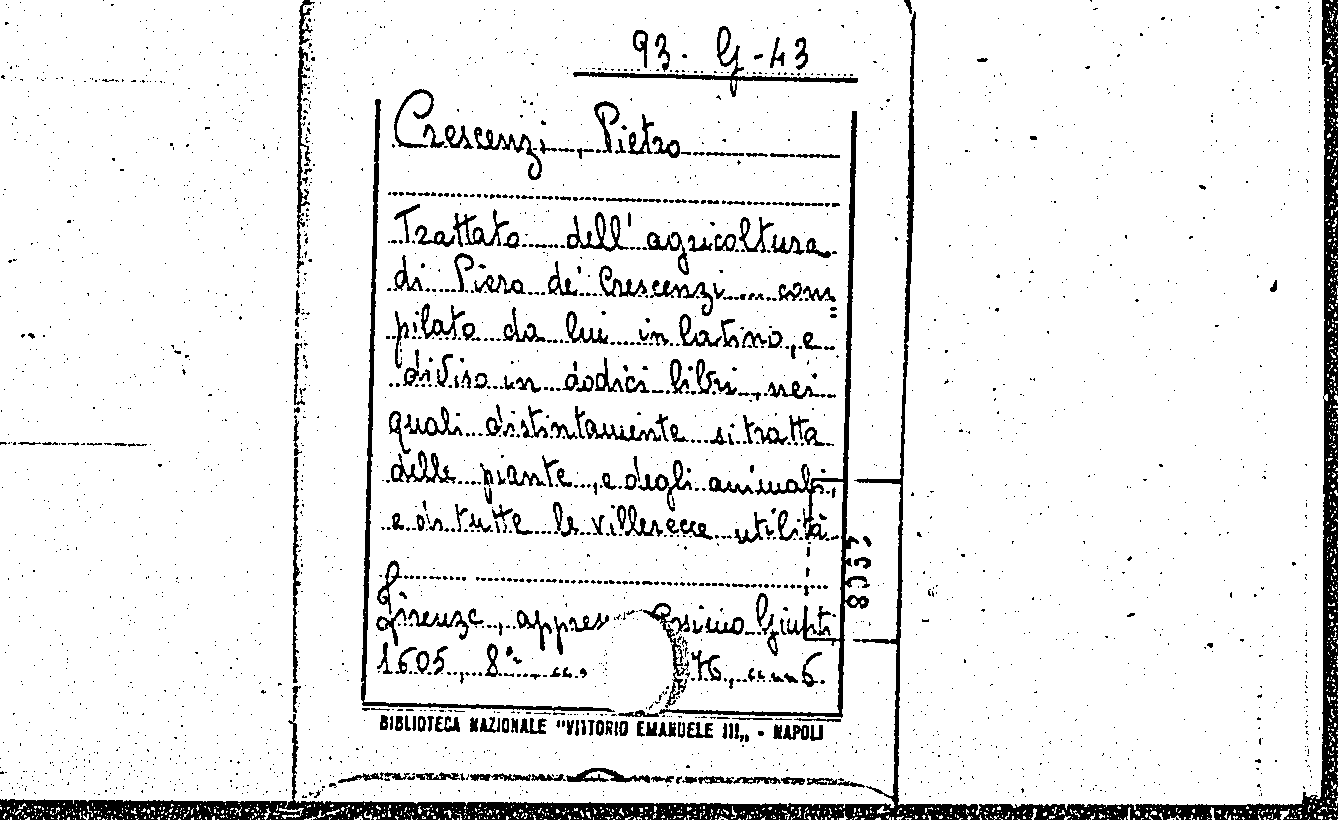 93. G-43
Crescenzi, Pietro
Trattato dell'agricoltura
di Piero de' Crescenzi ... com
pilato da lui in latino, e
diviso in dodici libri, nei
quali distintamente si tratta
delle piante, e degli animali,
e di tutte le villerecce utilità
Firenze, Cosimo Giunti,
1605, 8º, cc. 76, cc. nn 6.
8337
BIBLIOTECA NAZIONALE "VITTORIO EMANUELE III„ - NAPOLI